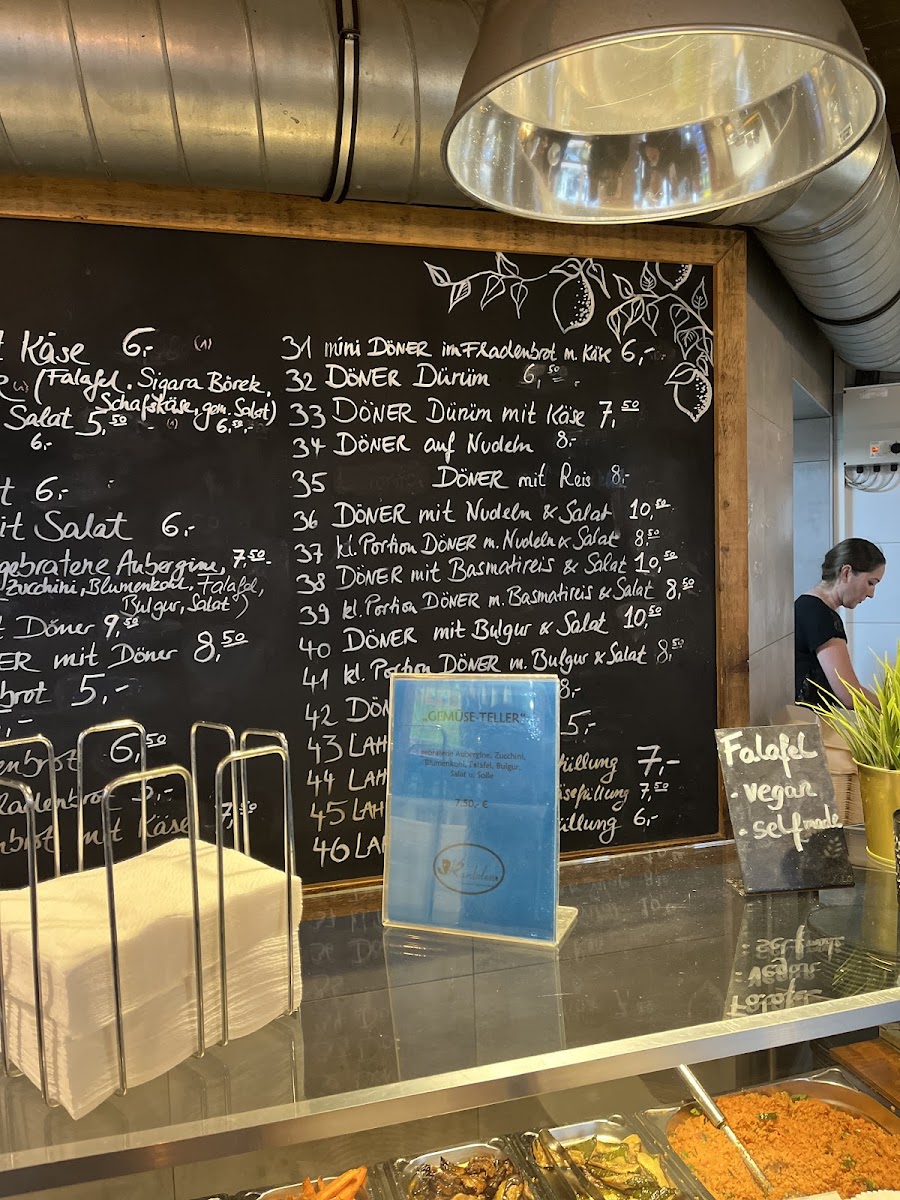 Käse 6,- (1)
(Falafel, Sigara Börek,
Schafskäse, gem. Salat)
Salat 5,50 - 6,50,-
6,-
6,-
it Salat 6,-
gebratene Aubergine, 7,50
Zucchini, Blumenkohl, Falafel,
Bulgur, Salat)
Döner 9,50
ER mit Döner 8,50
brot 5,-
6,50
ladenbrot 5,-
mit Käse 7,50
31 mini DÖNER im Fladenbrot m. Käse 6,-
32 DÖNER Dürüm 6,50
33 DÖNER Dürüm mit Käse 7,50
34 DÖNER auf Nudeln 8,-
35 DÖNER mit Reis 8,-
36 DÖNER mit Nudeln & Salat 10,50
37 kl. Portion DÖNER m. Nudeln & Salat 8,50
38 DÖNER mit Basmatireis & Salat 10,50
39 kl. Portion DÖNER m. Basmatireis & Salat 8,50
40 DÖNER mit Bulgur & Salat 10,50
41 kl. Portion DÖNER m. Bulgur & Salat 8,50
42 DÖN 8,-
43 LAH 5,-
44 LAH füllung 7,-
45 LAH sefüllung 7,50
46 LA üllung 6,-
„GEMÜSE-TELLER"
Gebratene Aubergine, Zucchini,
Blumenkohl, Falafel, Bulgur,
Salat u. Soße
7,50,- €
Falafel
- vegan
- selfmade